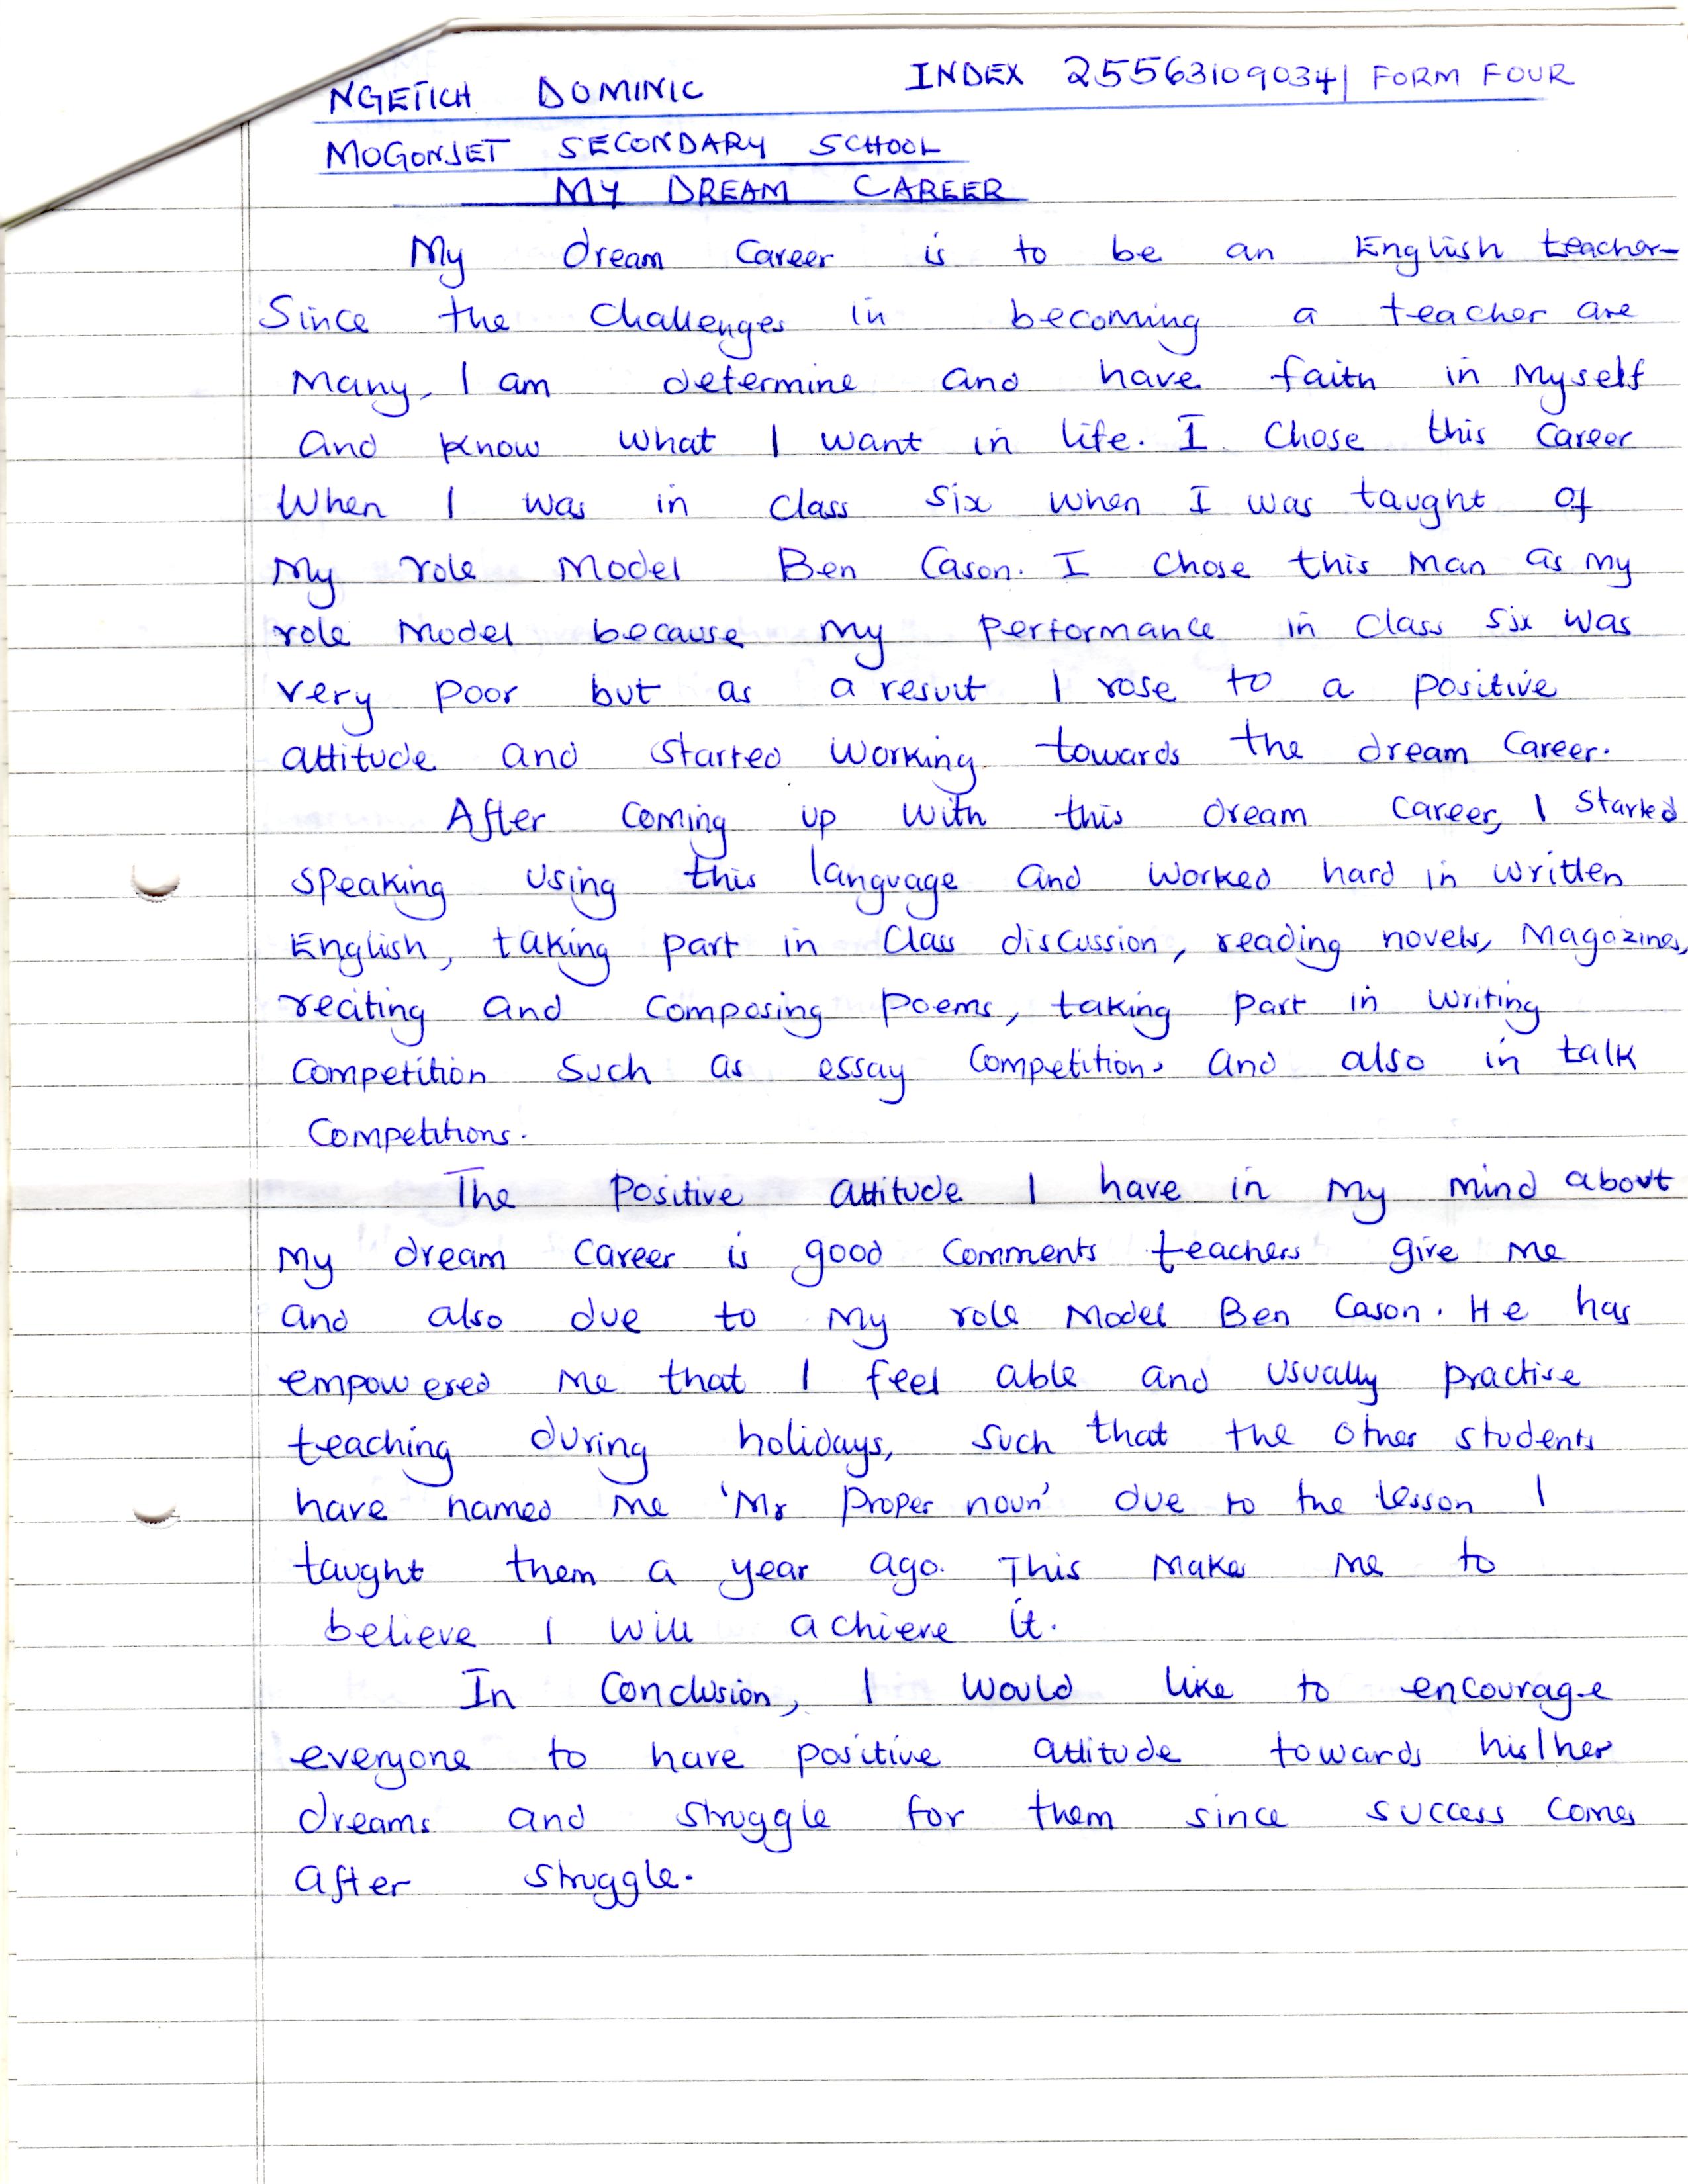 NGETICH DOMINIC INDEX 25563109034| FORM FOUR
MOGONJET SECONDARY SCHOOL
MY DREAM CAREER
My dream career is to be an English teacher-
Since the challenges in becoming a teacher are
many, I am determine and have faith in myself
and know what I want in life. I chose this career
when I was in class six when I was taught of
my role model Ben Cason. I chose this man as my
role model because my performance in class six was
very poor but as a result I rose to a positive
attitude and started working towards the dream career.
After coming up with this dream career, I started
speaking using this language and worked hard in written
English, taking part in class discussion, reading novels, magazines,
reciting and composing poems, taking part in writing
competition such as essay competitions and also in talk
competitions.
The positive attitude I have in my mind about
my dream career is good comments teachers give me
and also due to my role model Ben Cason. He has
empowered me that I feel able and usually practise
teaching during holidays, such that the other students
have named me 'Mr proper noun' due to the lesson I
taught them a year ago. This makes me to
believe I will achieve it.
In conclusion, I would like to encourage
everyone to have positive attitude towards his/her
dreams and struggle for them since success comes
after struggle.